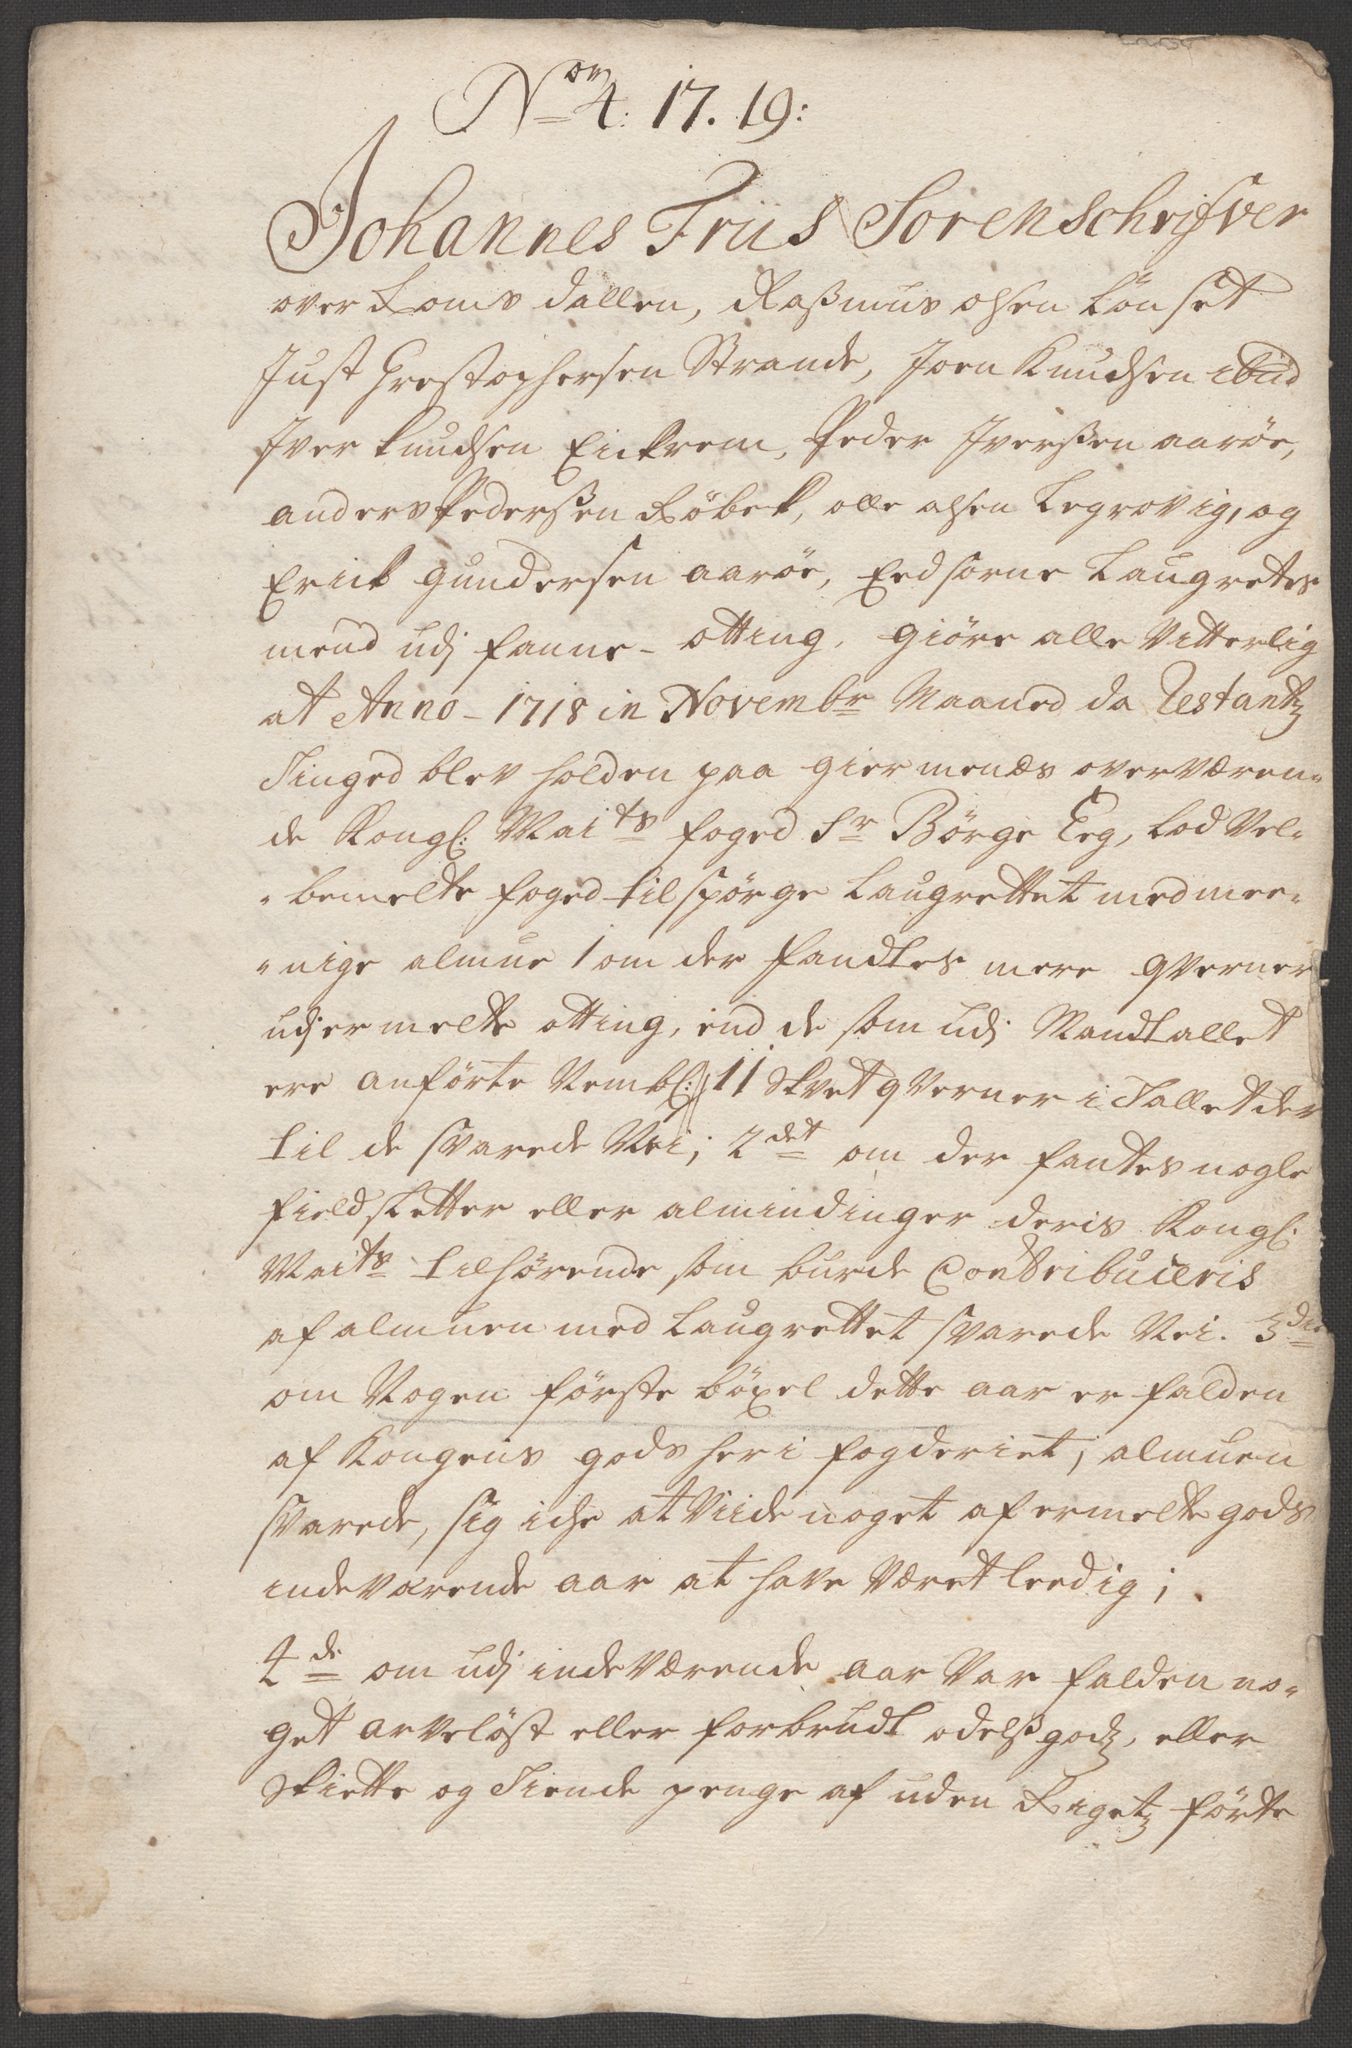 No 4. 17. 19:
Johannes Friis Sorenschrifver
over Romsdallen, Rasmus olsen Lönset
Just Christophersen Strande, Joen Knudsen ibid
Iver knudsen Eickrem, Peder Iverssen aaröe,
anders Pederssen Röbek, olle olsen Legrovig, og
Erick gundersen aaröe, Eedsorne Laugrettes
mend udj fanne-otting, giöre alle Vitterlig
at Anno-1718 in Novembr Maaned da Restantz
Tinged blev holden paa giermenæs overværen-
de Kongl: Maits foged Sr Börge Eeg, lod Vel-
bemelte foged tilspörge Laugrettet med mee-
nige almue 1 om der fandtes mere qverner
udj ermelte otting, end de som udj Mandtallet
ere anförte Nembl: 11 Skvetqverner i Tallet der
til de svarede Nei; 2det om der fantes nogle
fieldsletter eller almindinger deris Kongl:
Maits tilhörende som burde Contribuceris
af almuen med Laugrettet svarede Nei. 3die
om Nogen förste böxel dette aar er falden
af Kongens gods her i fogderiet; almuen
svarede, sig iche at Viide noget af ermelte gods
indeværende aar at have Været leedig;
4de om udj indeværende aar Var falden no-
get arvelöst eller forbrudt odelsgodz, eller
Skiette og Tiende penge af uden Rigetz förte